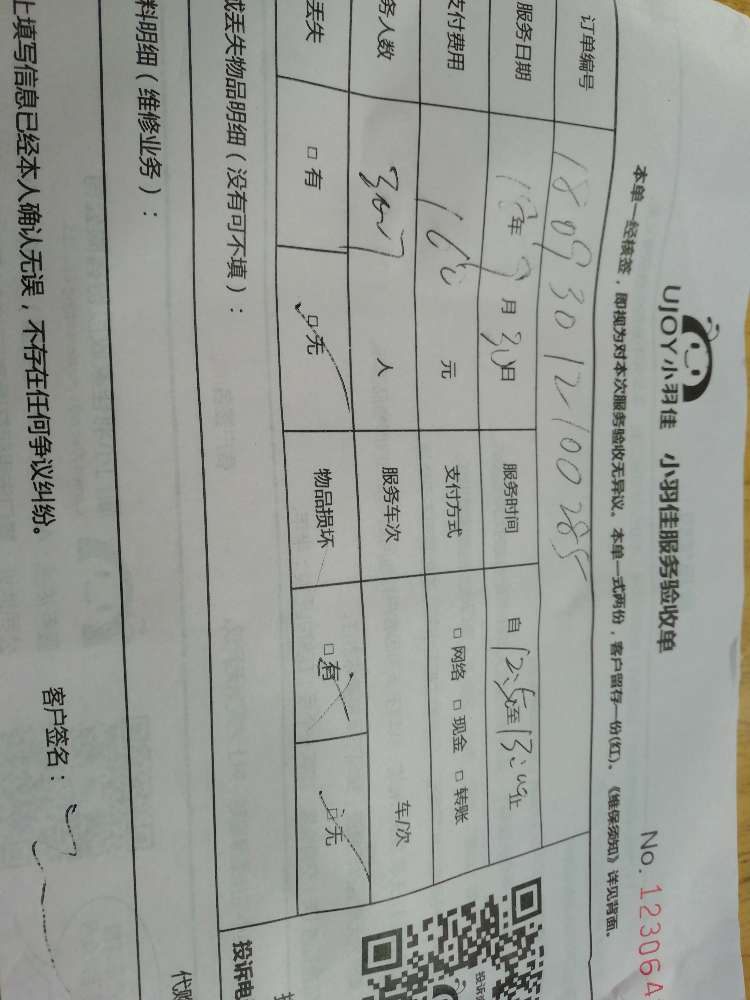 UJOY小羽佳 小羽佳服务验收单
No. 123064
本单一经核签，即视为对本次服务验收无异议。本单一式两份，客户留存一份(红)。《维保须知》详见背面。
订单编号 18093012100285
服务日期 18年9月30日 服务时间 自 至 止
支付费用 160 元 支付方式 □网络 □现金 □转账
务人数 人 服务车次 车/次
丢失 □有 □无 物品损坏 □有 □无
或丢失物品明细（没有可不填）：
投诉电
料明细（维修业务）：
上填写信息已经本人确认无误，不存在任何争议纠纷。 客户签名：